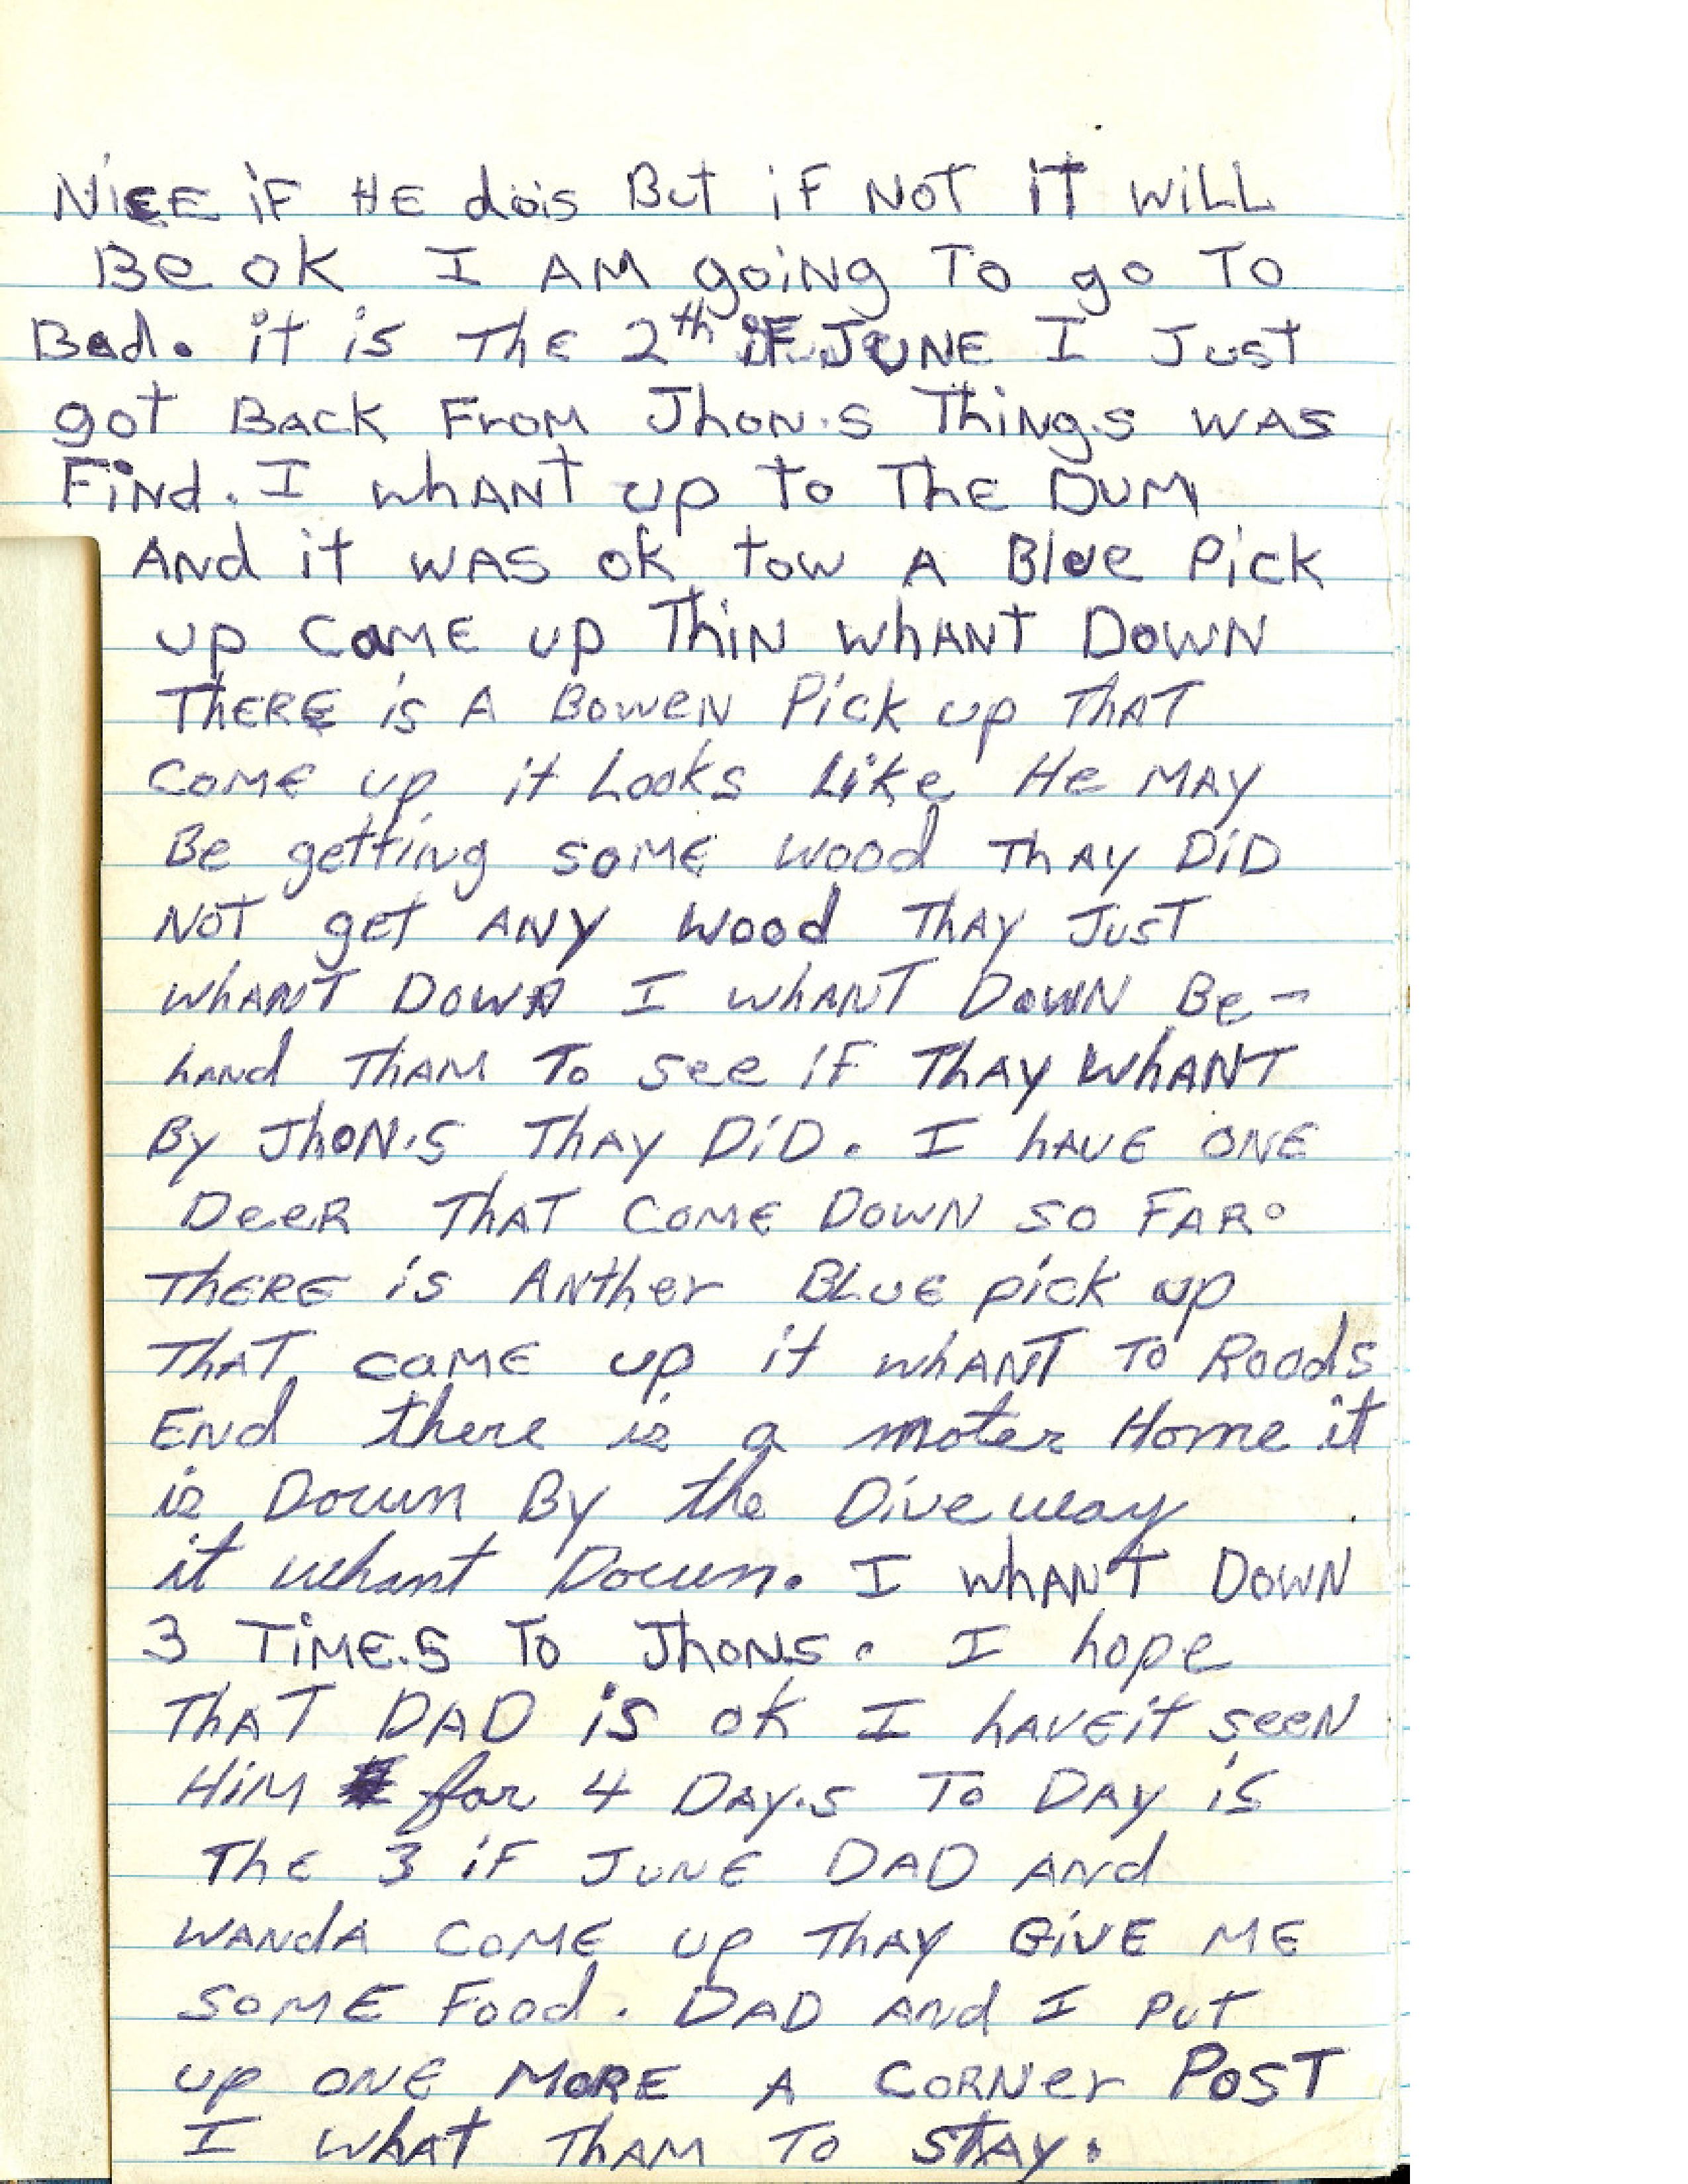 NICE iF HE dois But iF NOT IT WiLL
Be OK I AM going To go To
Bad. it is The 2th iF JUNE I Just
got BACK FroM Jhon.s Things was
Find. I whANT up to The DUM
ANd it WAS ok tow A Blue Pick
up CaME up ThiN whANT DOWN
ThERE is A BoweN Pick up ThAT
COME up it Looks Like He MAY
Be getting soME wood ThAY DiD
NOT get ANY wood ThAY JusT
whANT DOWN I whANT DOWN Be-
hANd ThAM To see iF ThAY WhANT
By JhON.s ThAY DiD. I hAVE ONE
DeeR ThAT COME DOWN SO FAR.
ThERE is ANther BLUE pick up
ThAT caME up it whANT TO Roods
ENd there is a moter Home it
is Down By the Dive way
it whant Down. I whANT DOWN
3 TiME.S To JhONs. I hope
ThAT DAD is ok I hAVEit seeN
HiM for 4 DAY.s To DAY is
The 3 iF JUNE DAD ANd
WANdA COME up ThAY GiVE ME
SOME Food. DAD ANd I PuT
up ONE MORE A CORNer POST
I whAT ThAM To STAY.